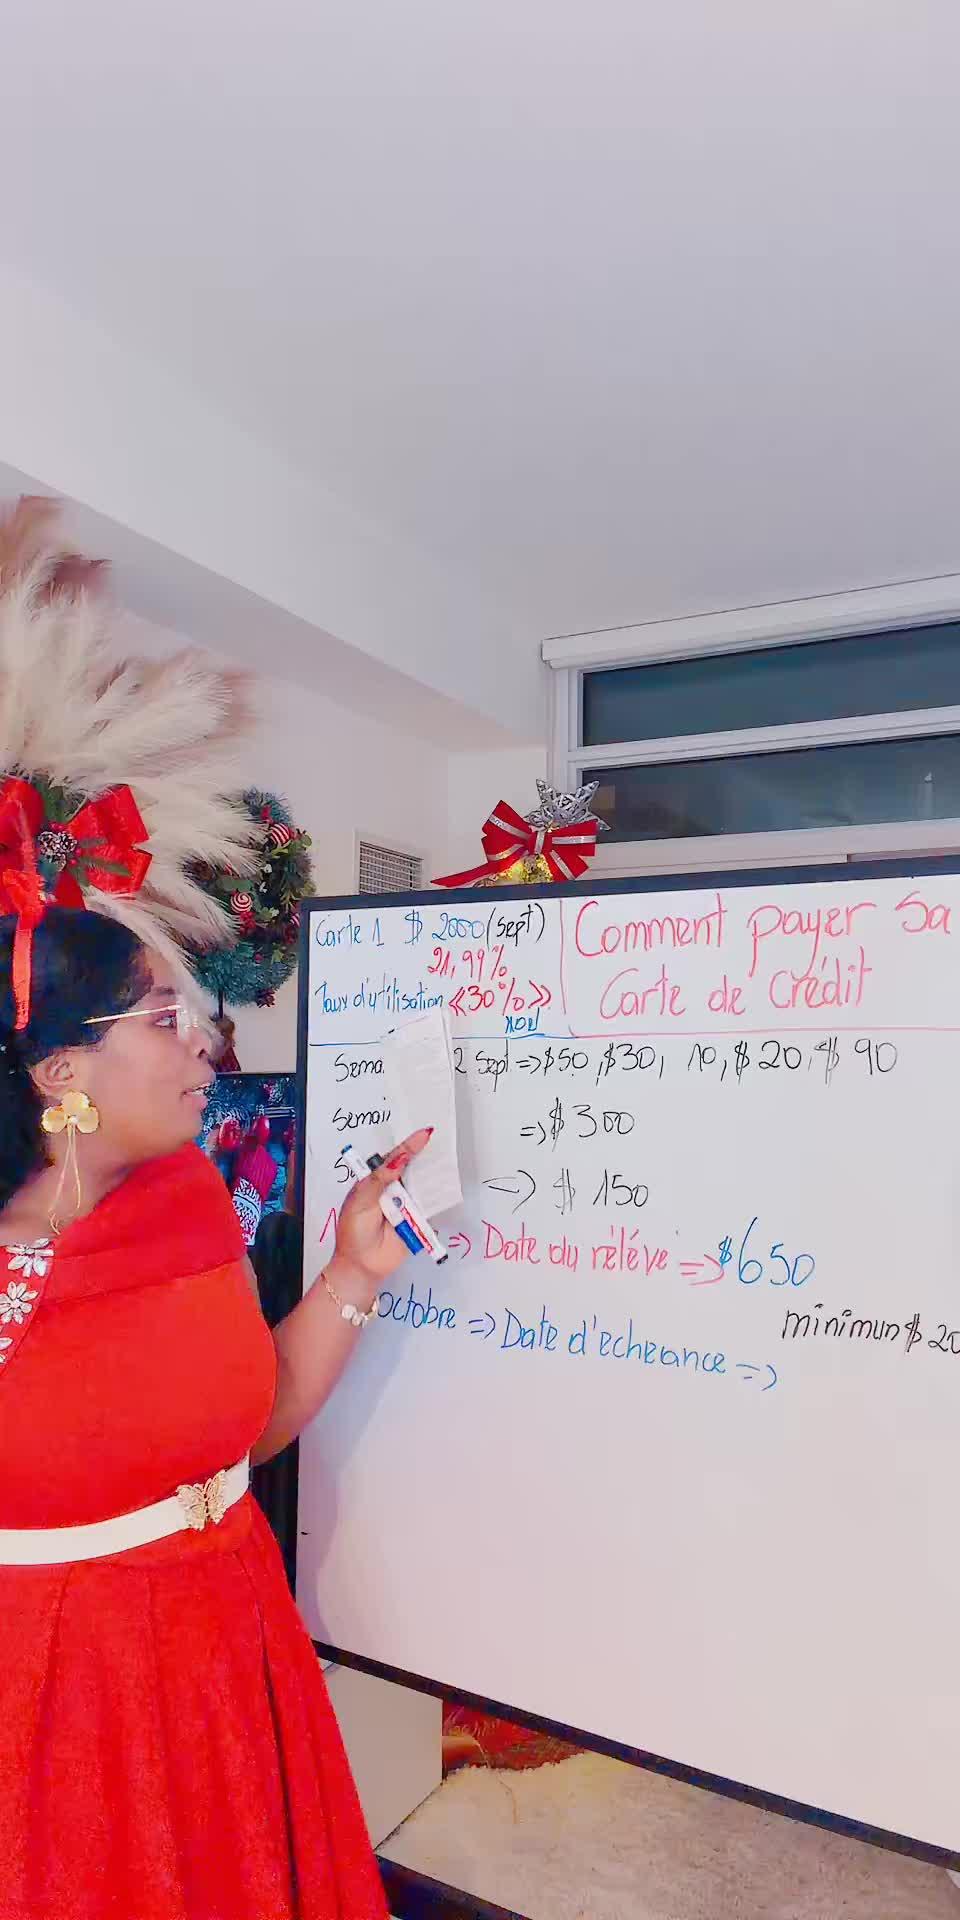 Carte 1 $ 2000 (sept)
21,99%
Taux d'utilisation <<30%>>
Comment payer sa
Carte de crédit
2 Sept => $50, $30, 10, $20, $90
=> $300
=> $ 150
=> Date du rélévé => $650
octobre => Date d'echeance =>
minimun $ 20